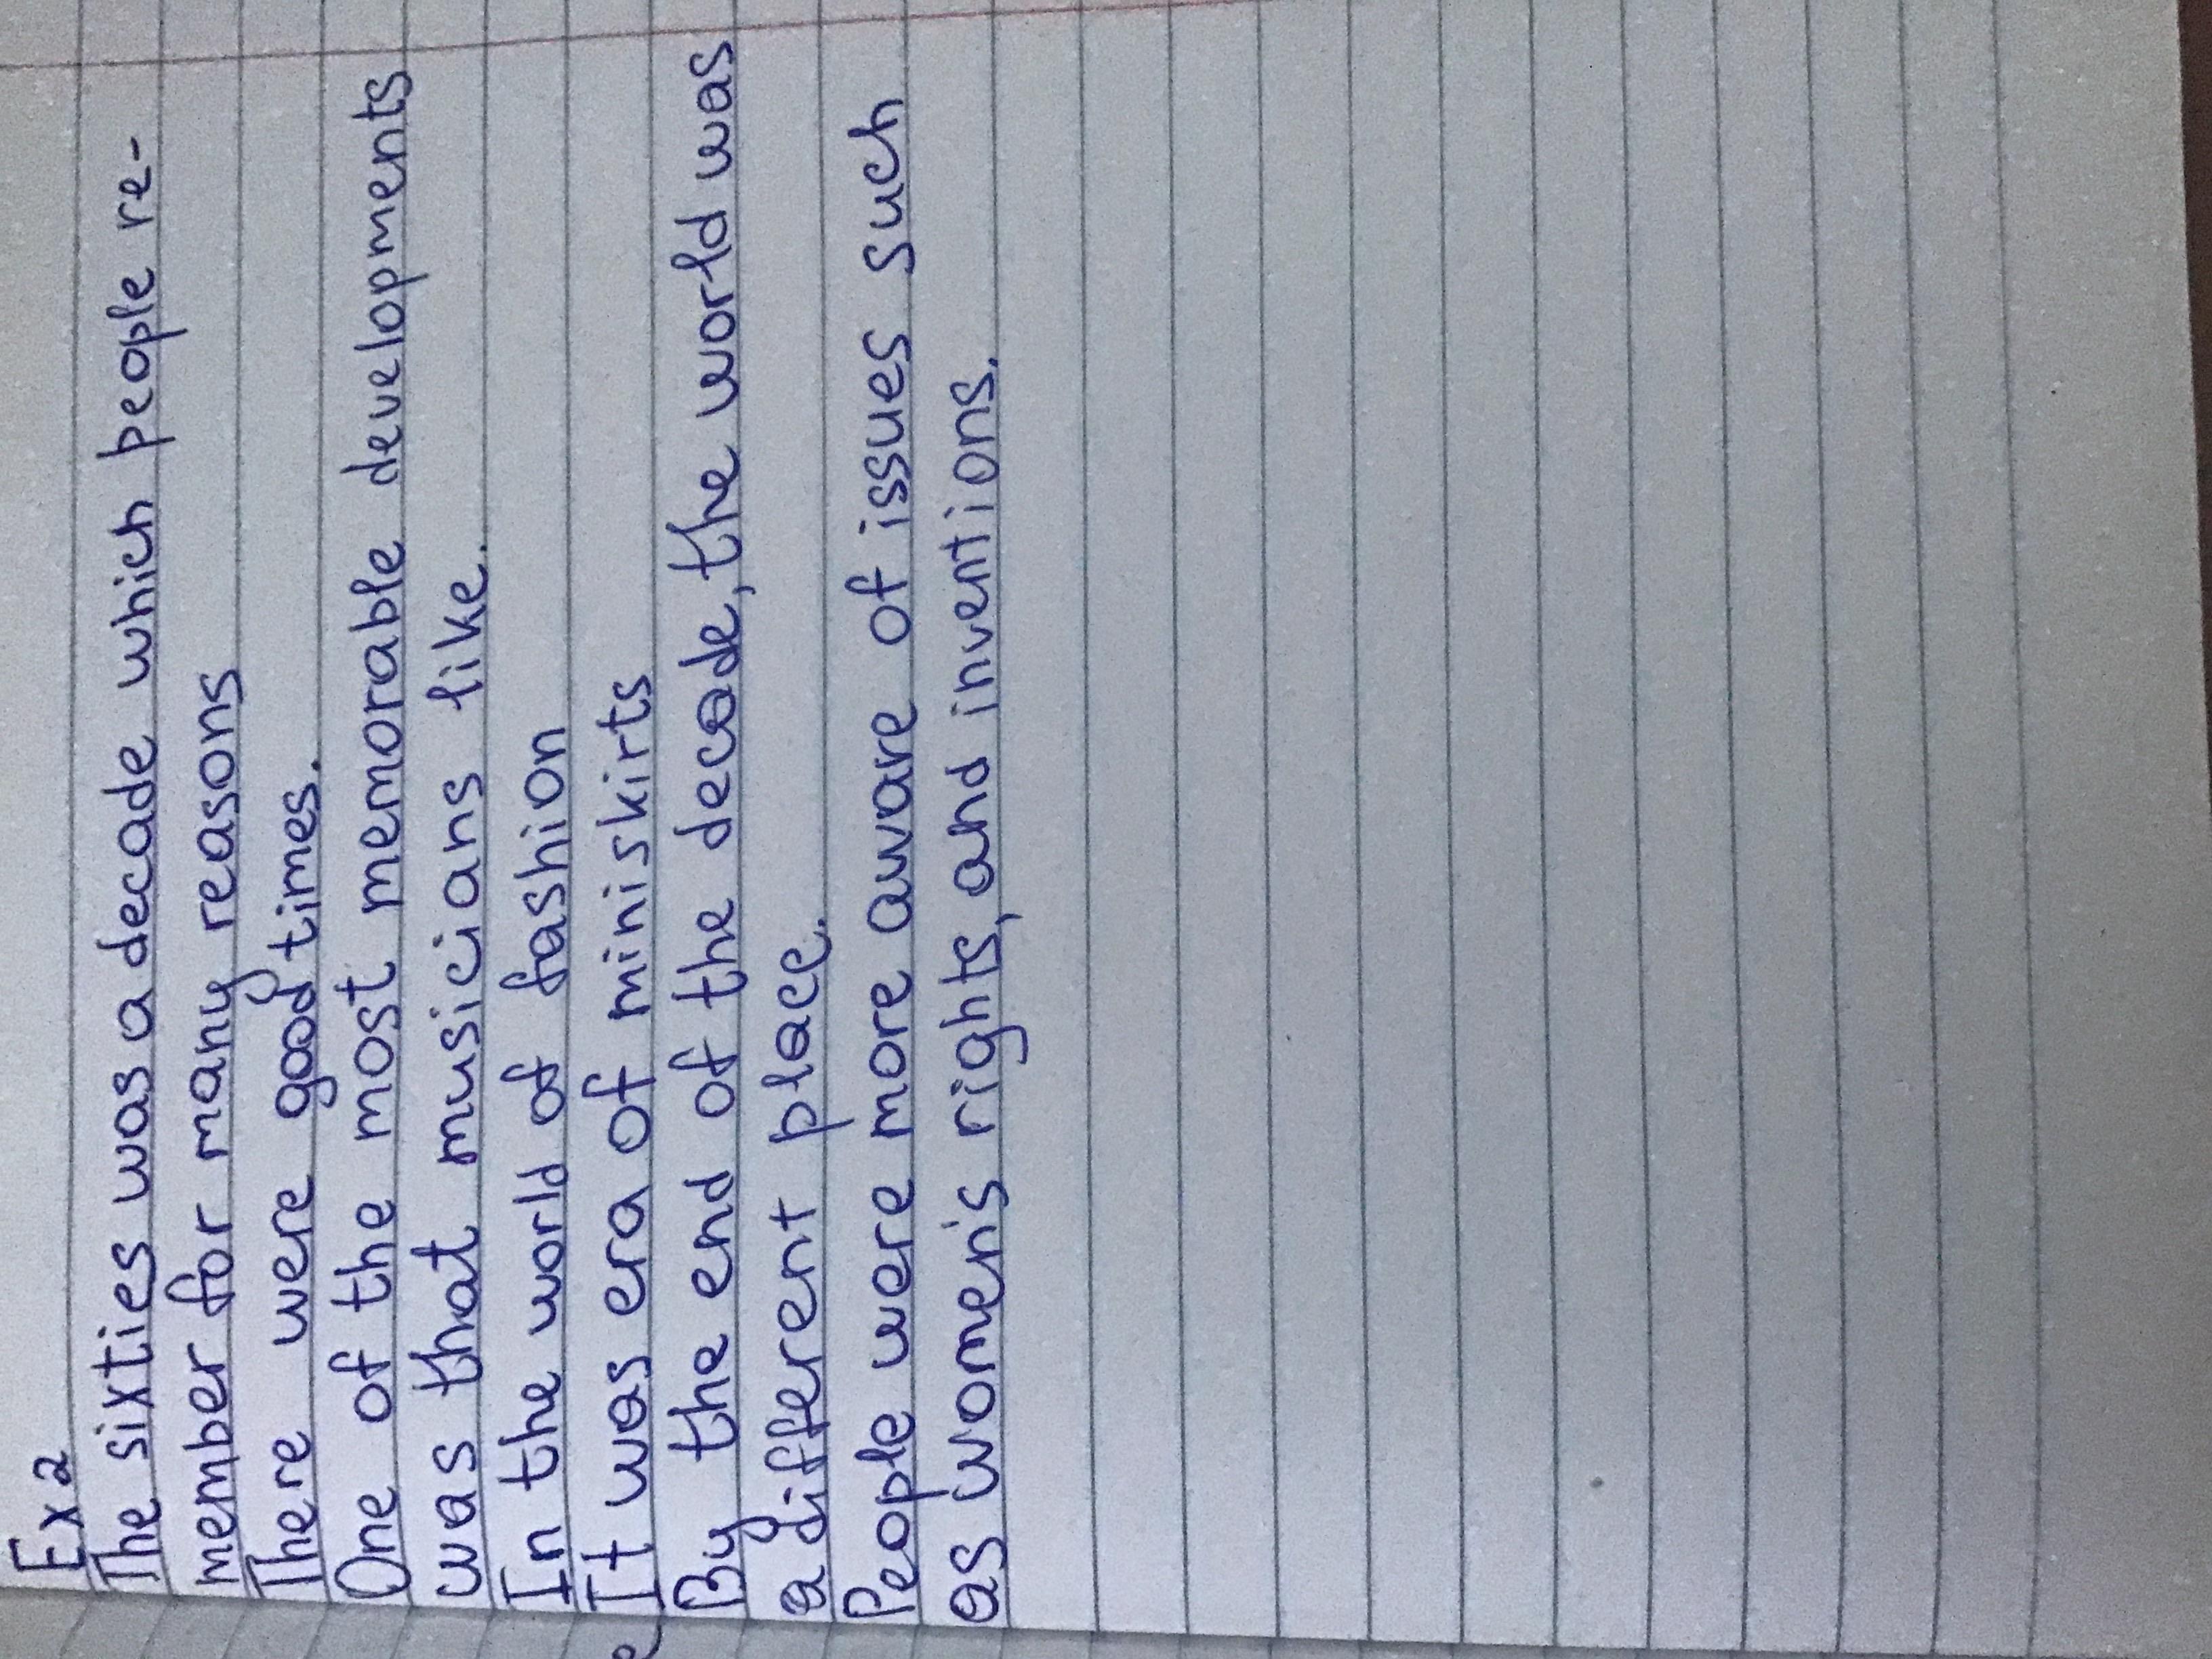 Ex 2
The sixties was a decade which people re-
member for many reasons
There were good times.
One of the most memorable developments
was that musicians like.
In the world of fashion
It was era of miniskirts
By the end of the decade, the world was
a different place.
People were more aware of issues such
as women's rights, and inventions.